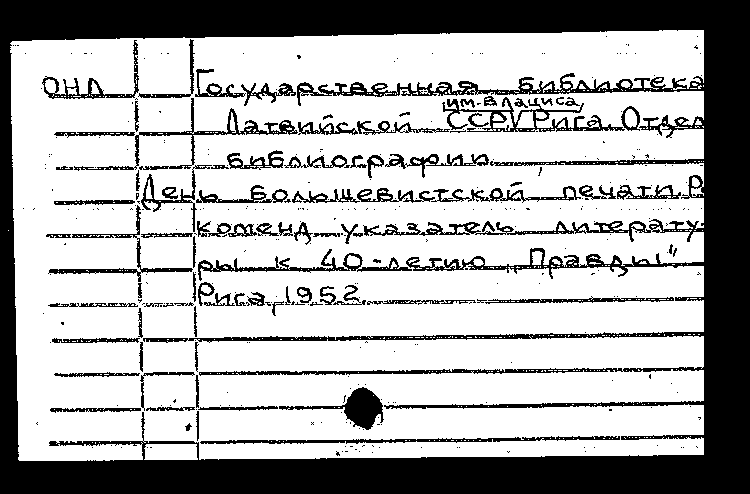 ОНЛ Государственная библиотека
им. В Лациса,
Латвийской ССР, Рига. Отдел
библиографии
День большевистской печати. Ре
коменд указатель литерату-
ры к 40-летию „Правды"
Рига, 1952.